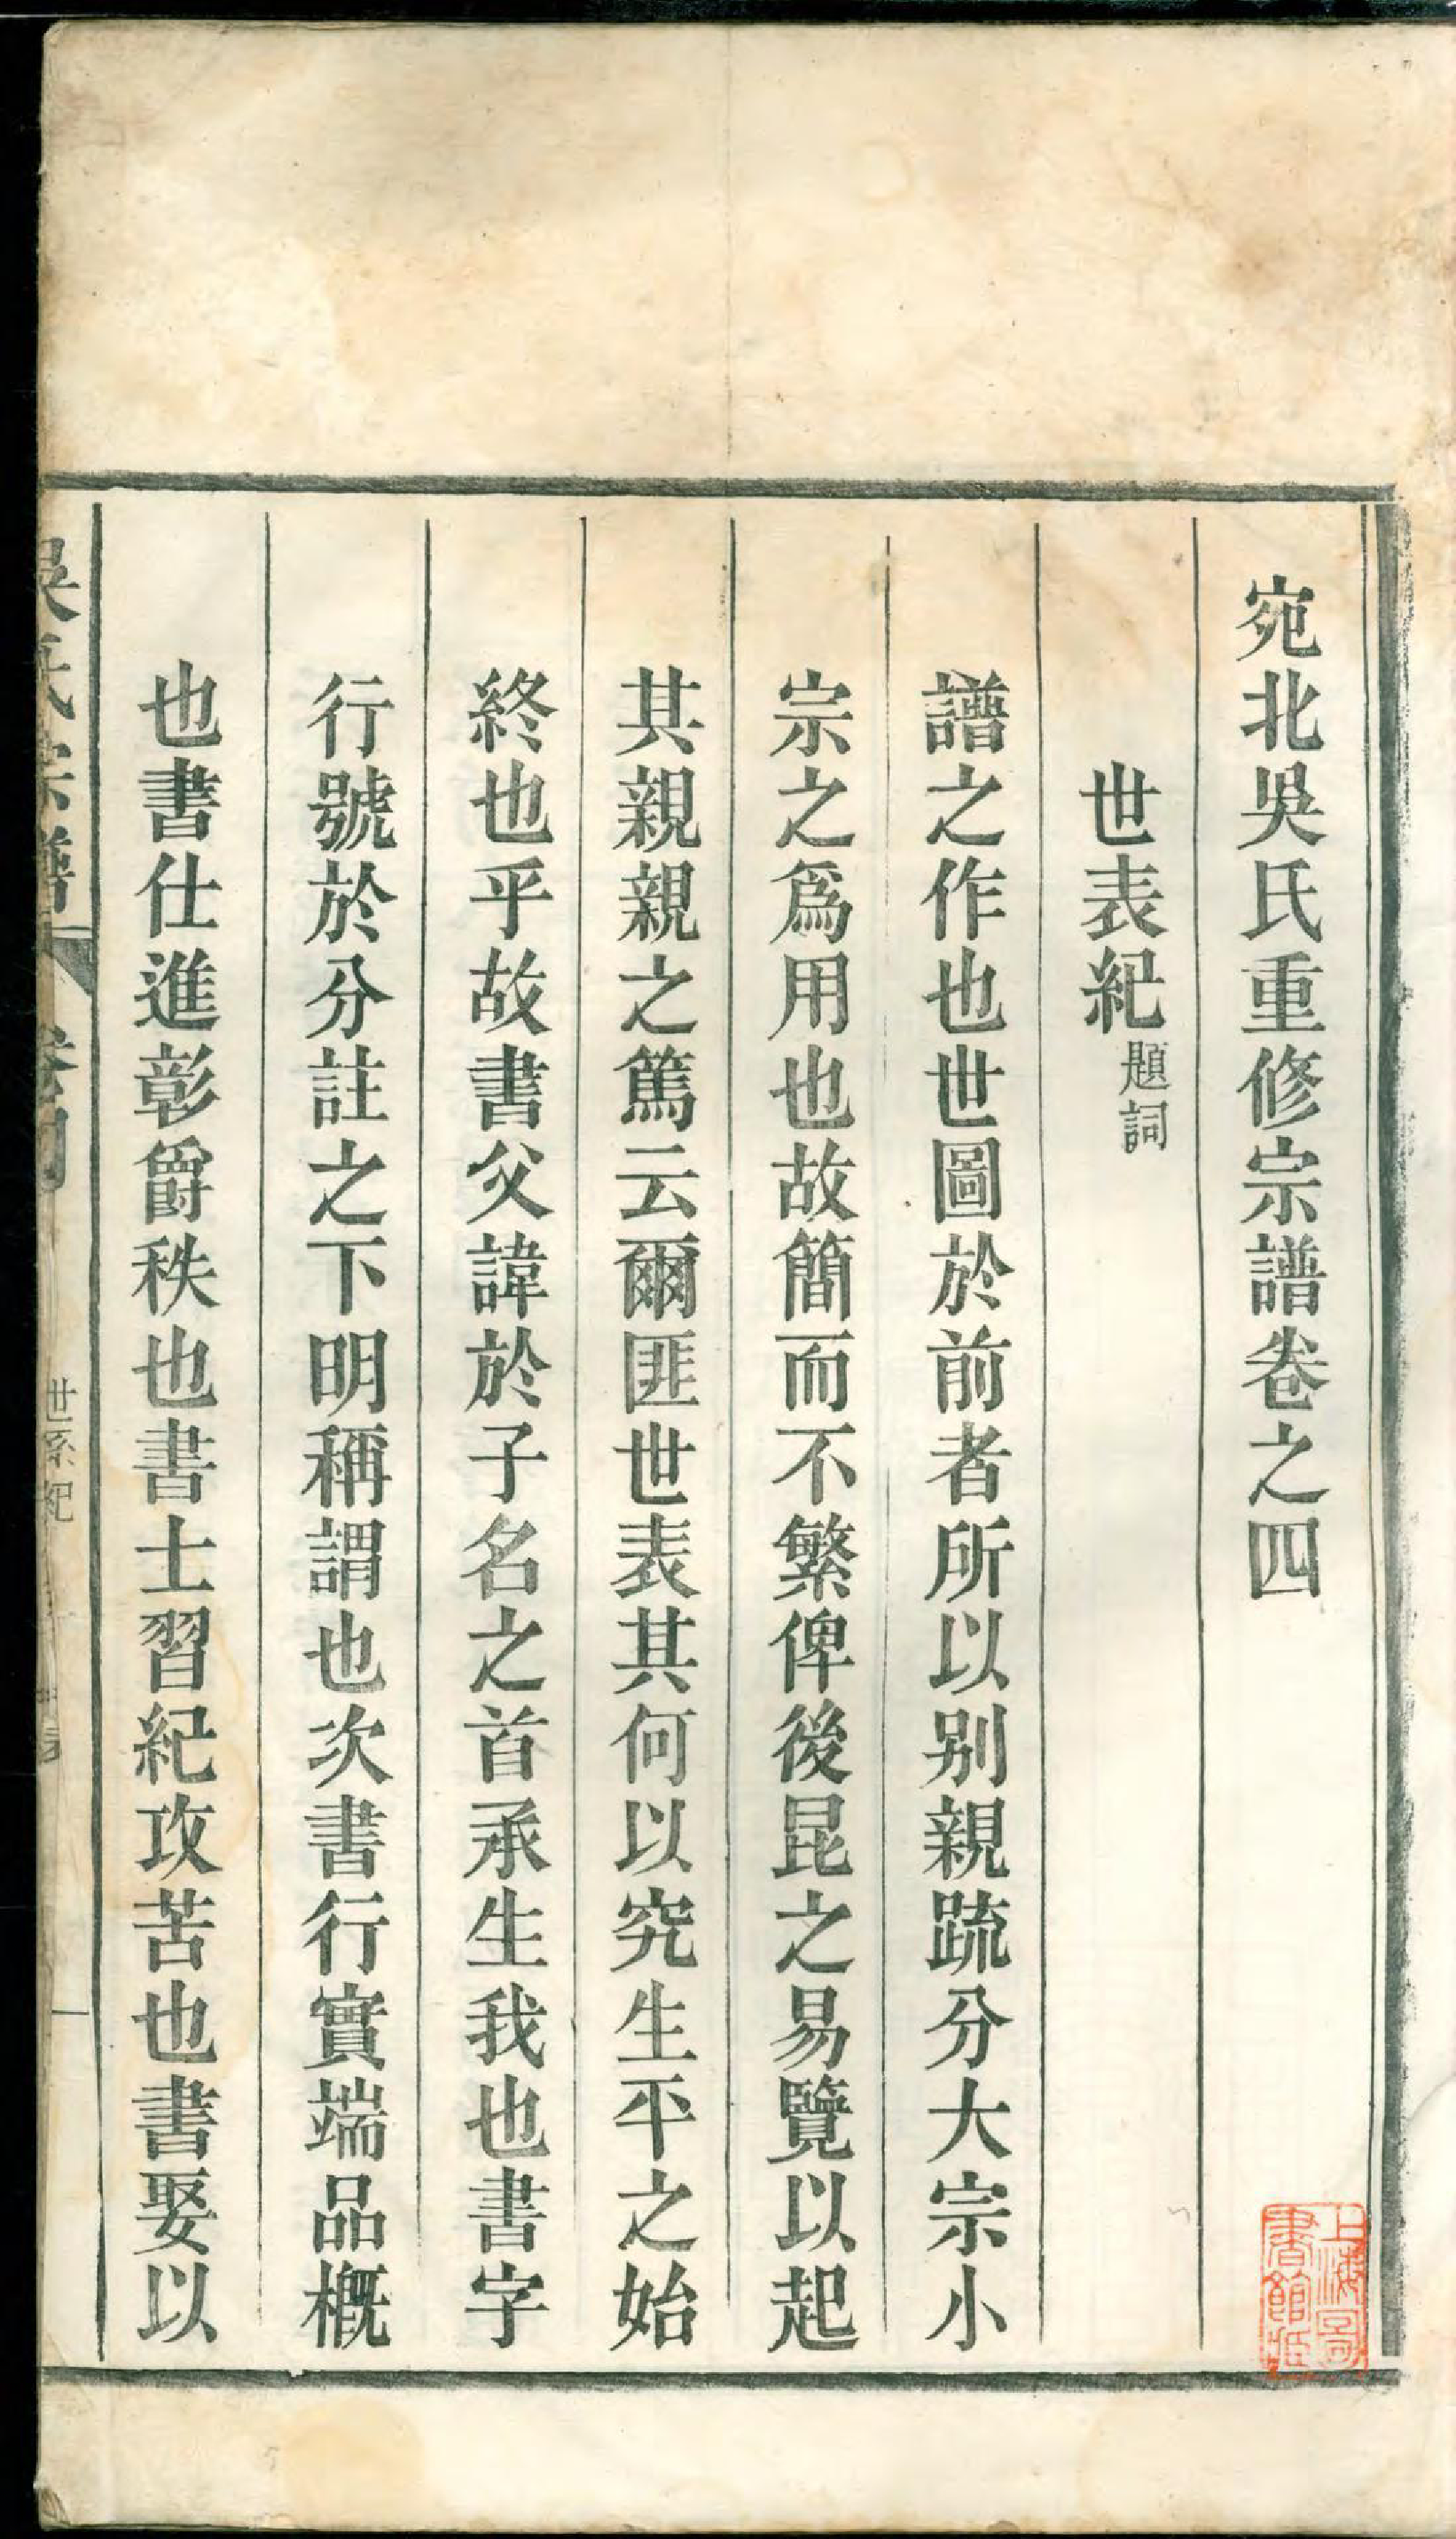 宛北吳氏重修宗譜卷之四
世表紀題詞
譜之作也世圖於前者所以别親䟽分大宗小
宗之爲用也故簡而不繁俾後昆之易覽以起
其親親之篤云爾匪世表其何以究生平之始
終也乎故書父諱於子名之首承生我也書字
行號於分註之下明稱謂也次書行實端品槪
也書仕進彰爵秩也書士習紀攻苦也書娶以
吳氏宗譜
世系紀
一
上海圖
書館藏